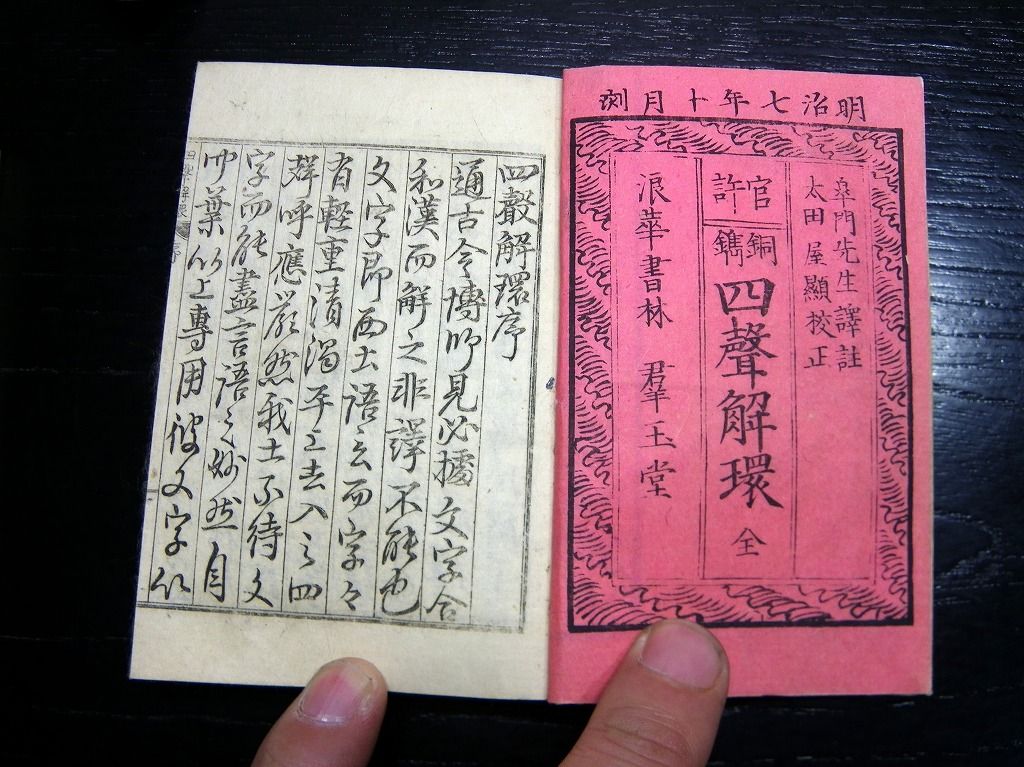 明治七年十月刻
皐門先生譯註
太田屋顯校正
官許
銅鐫
四聲解環 全
浪華書林 羣玉堂
四聲解環序
通古今博所見必據文字合
和漢而解之非譯不能也
文字即西土語云而字々
有輕重清濁平上去入之四
聲呼應嚴然我土不待文
字而能盡言語之妙然自
中葉以上專用彼文字以